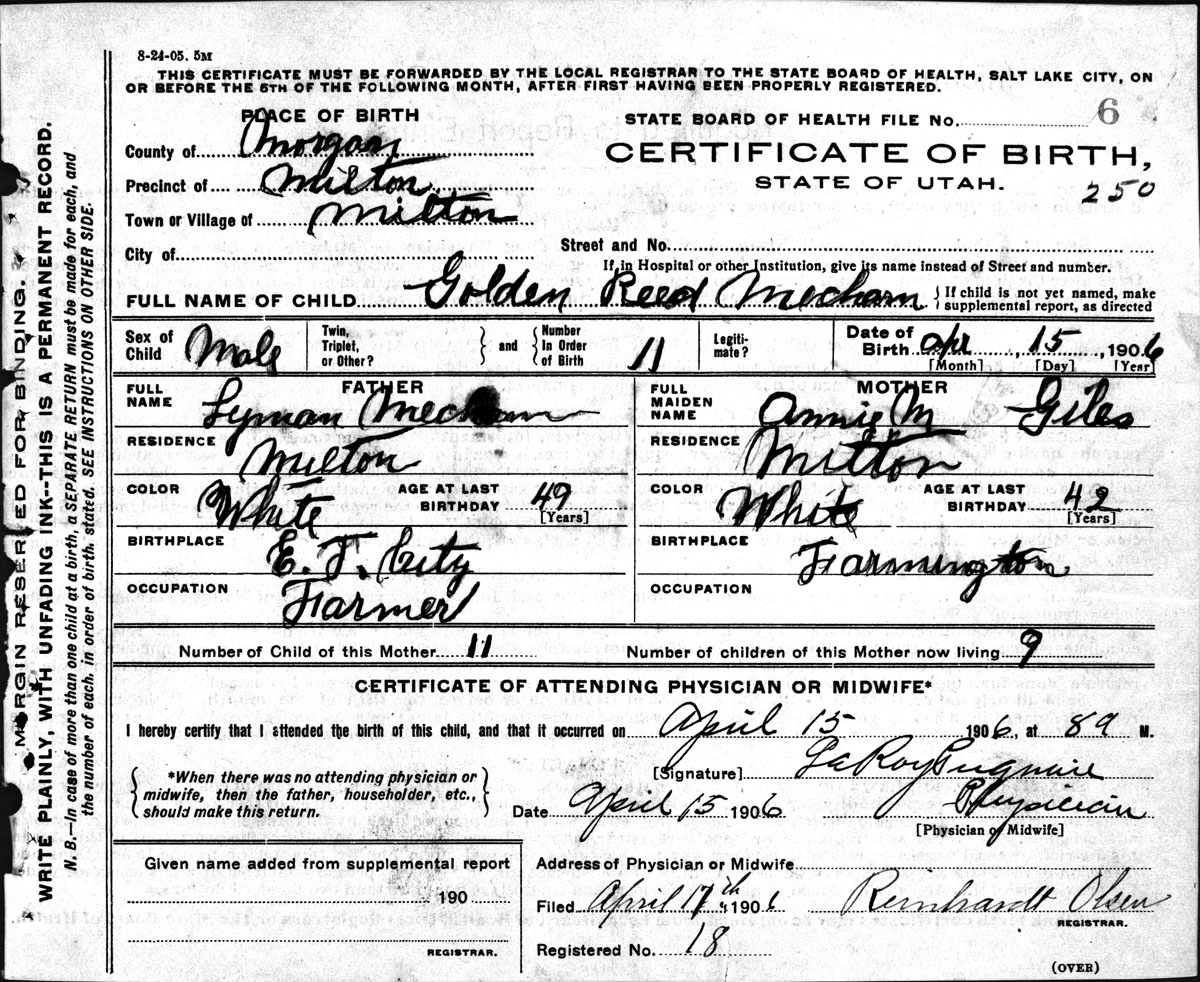 8-24-05. 5M
THIS CERTIFICATE MUST BE FORWARDED BY THE LOCAL REGISTRAR TO THE STATE BOARD OF HEALTH, SALT LAKE CITY, ON
OR BEFORE THE 5TH OF THE FOLLOWING MONTH, AFTER FIRST HAVING BEEN PROPERLY REGISTERED.
PLACE OF BIRTH
STATE BOARD OF HEALTH FILE No. 6
County of Morgan
CERTIFICATE OF BIRTH,
Precinct of Milton
STATE OF UTAH.
250
Town or Village of Milton
Street and No.
City of
If in Hospital or other Institution, give its name instead of Street and number.
FULL NAME OF CHILD Golden Reed Mecham { If child is not yet named, make
supplemental report, as directed
Sex of Child Male
Twin, Triplet, or Other? } and { Number In Order of Birth 11
Legitimate?
Date of Birth Apr, 15, 1906
[Month] [Day] [Year]
FATHER
FULL NAME Lyman Mecham
MOTHER
FULL MAIDEN NAME Annie M Giles
RESIDENCE Milton
RESIDENCE Milton
COLOR White AGE AT LAST BIRTHDAY 49 [Years]
COLOR White AGE AT LAST BIRTHDAY 42 [Years]
BIRTHPLACE E. T. City
BIRTHPLACE Farmington
OCCUPATION Farmer
OCCUPATION
Number of Child of this Mother 11 Number of children of this Mother now living 9
CERTIFICATE OF ATTENDING PHYSICIAN OR MIDWIFE*
I hereby certify that I attended the birth of this child, and that it occurred on April 15 1906, at 8 a M.
{ *When there was no attending physician or
midwife, then the father, householder, etc.,
should make this return. }
[Signature] LaRoy Pugmire
Date April 15 1906 Physician
[Physician or Midwife]
Given name added from supplemental report
190
REGISTRAR.
Address of Physician or Midwife
Filed April 17th 1906 Reinhardt Olsen
REGISTRAR.
Registered No. 18
(OVER)
MARGIN RESERVED FOR BINDING.
WRITE PLAINLY, WITH UNFADING INK--THIS IS A PERMANENT RECORD.
N. B.—In case of more than one child at a birth, a SEPARATE RETURN must be made for each, and
the number of each, in order of birth stated. SEE INSTRUCTIONS ON OTHER SIDE.